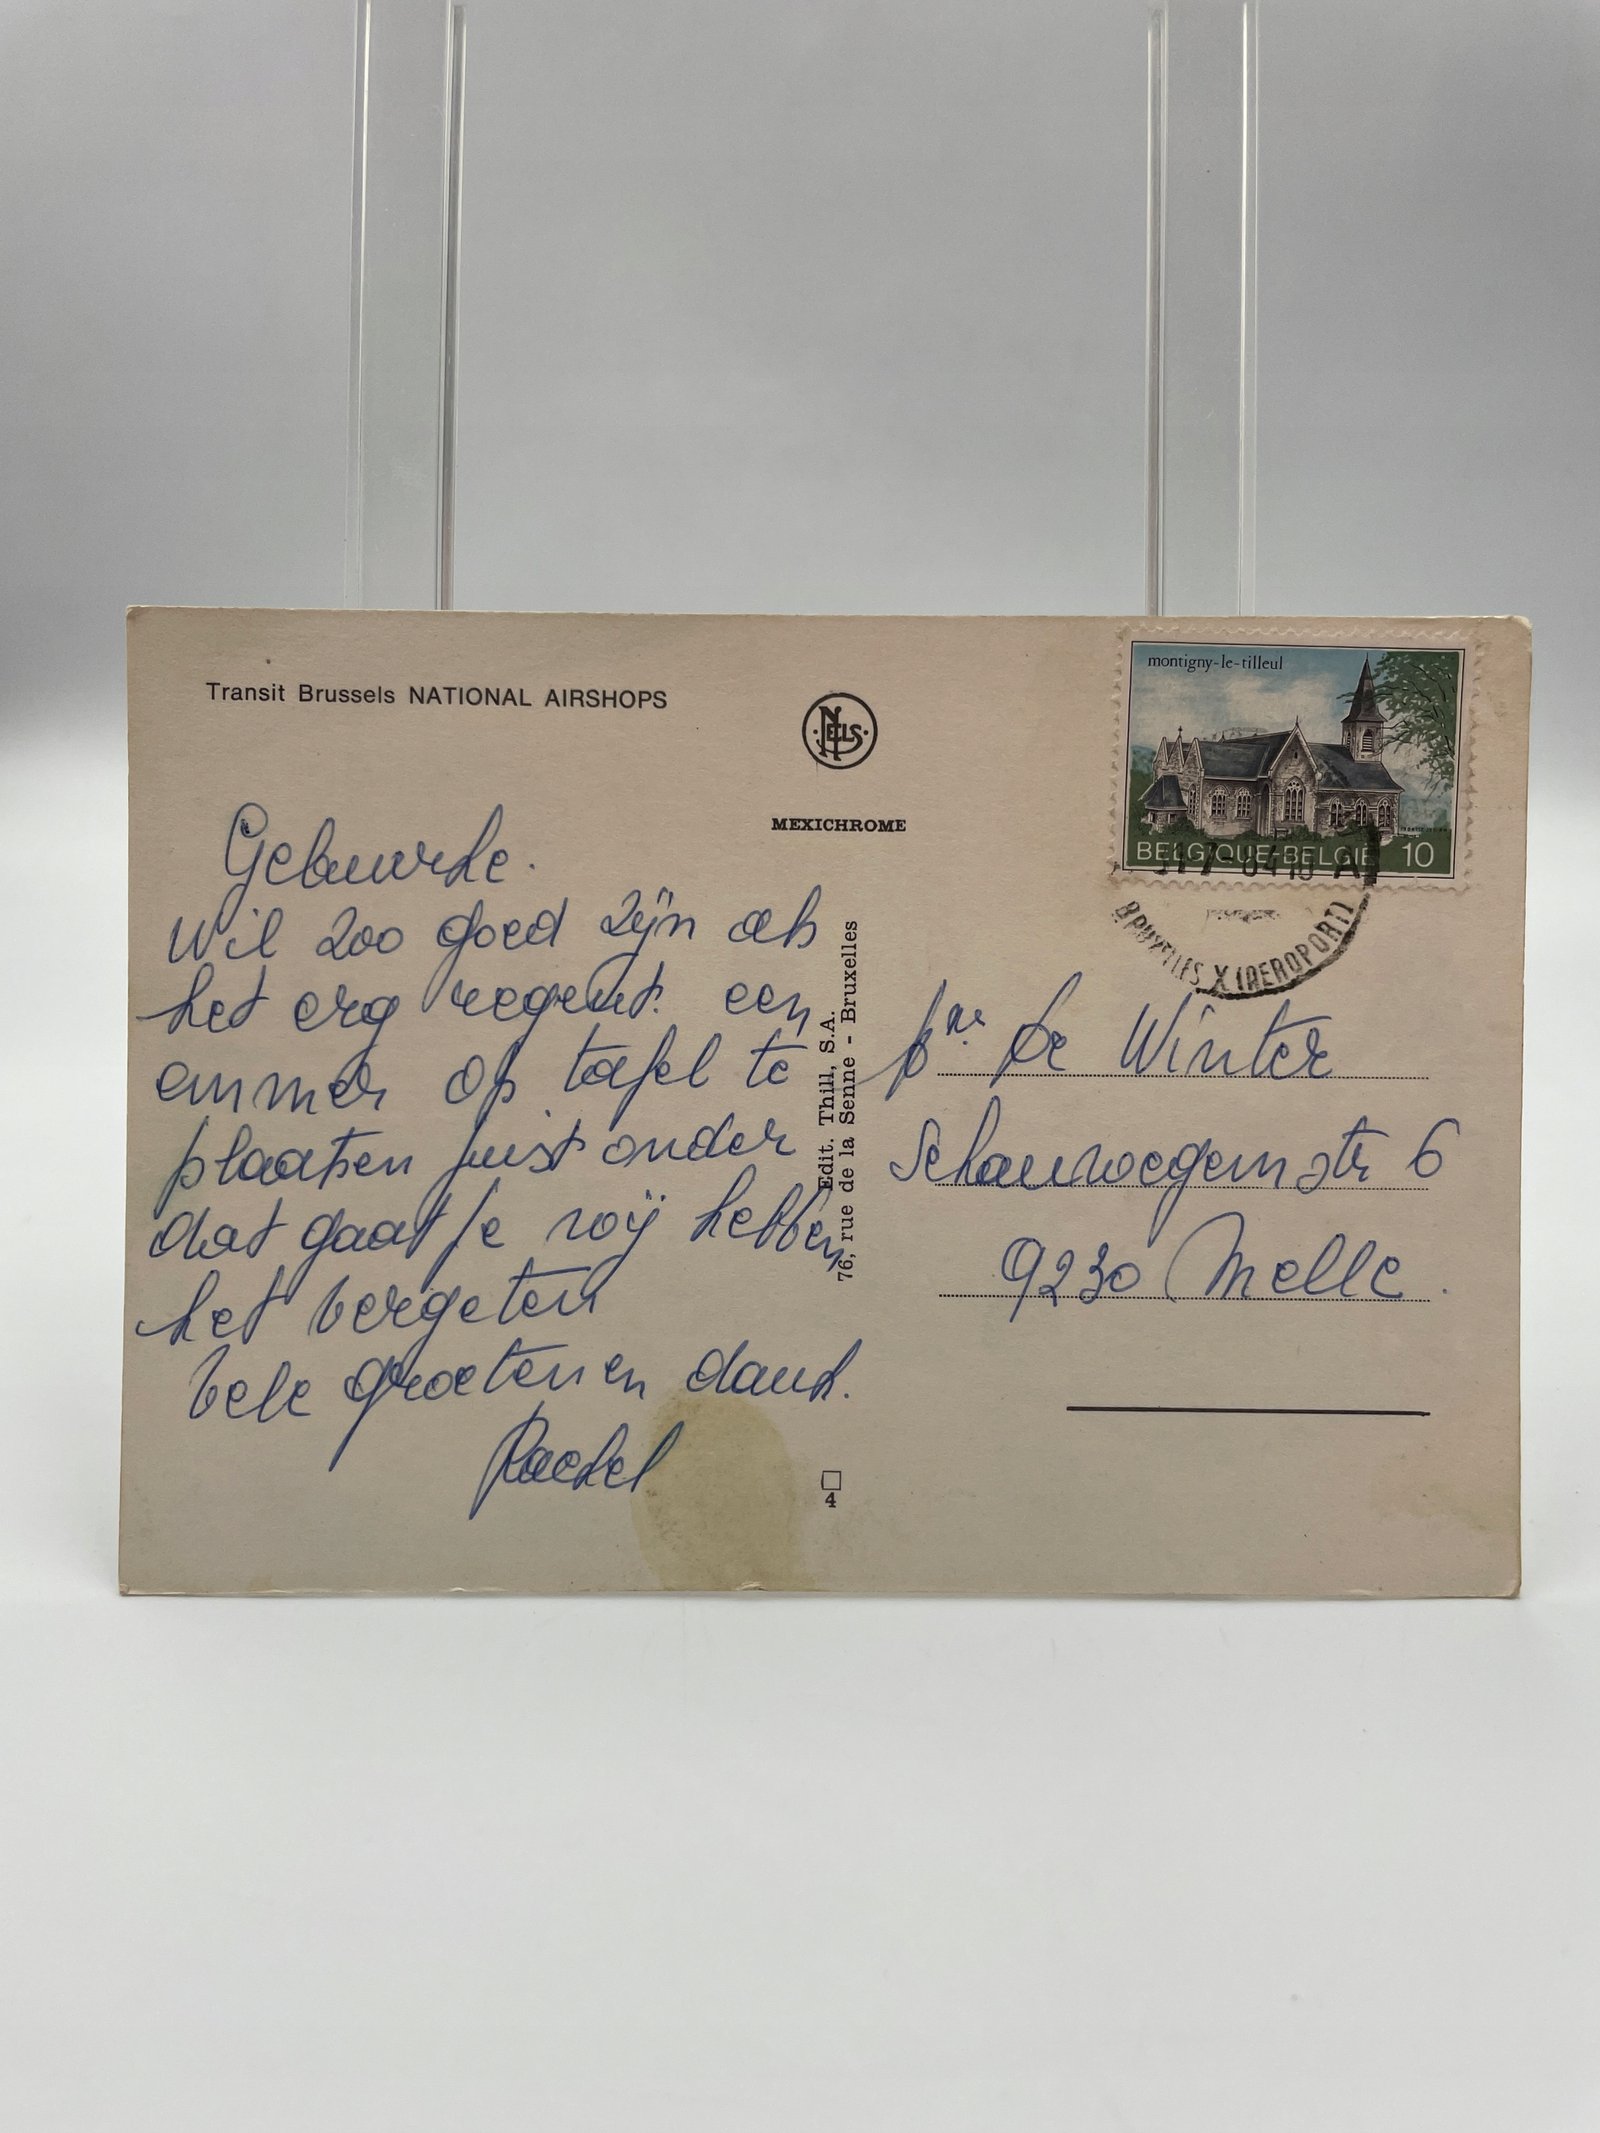 Transit Brussels NATIONAL AIRSHOPS
NELS
MEXICHROME
montigny-le-tilleul
BELGIQUE-BELGIË 10
BRUXELLES X (AEROPORT)
Gebuurke.
Wil zoo goed zijn als
het erg regent een
emmer op tafel te
plaatsen juist onder
dat gaatje wij hebben
het vergeten
Vele groeten en dank.
Rachel
Edit. Thill, S.A.
76, rue de la Senne - Bruxelles
4
De Winter
Schauwegemstr 6
9230 Melle.